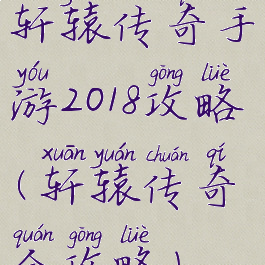 轩辕传奇手
yóu gōng lüè
游2018攻略
xuān yuán chuán qí
(轩辕传奇
quán gōng lüè
全攻略)